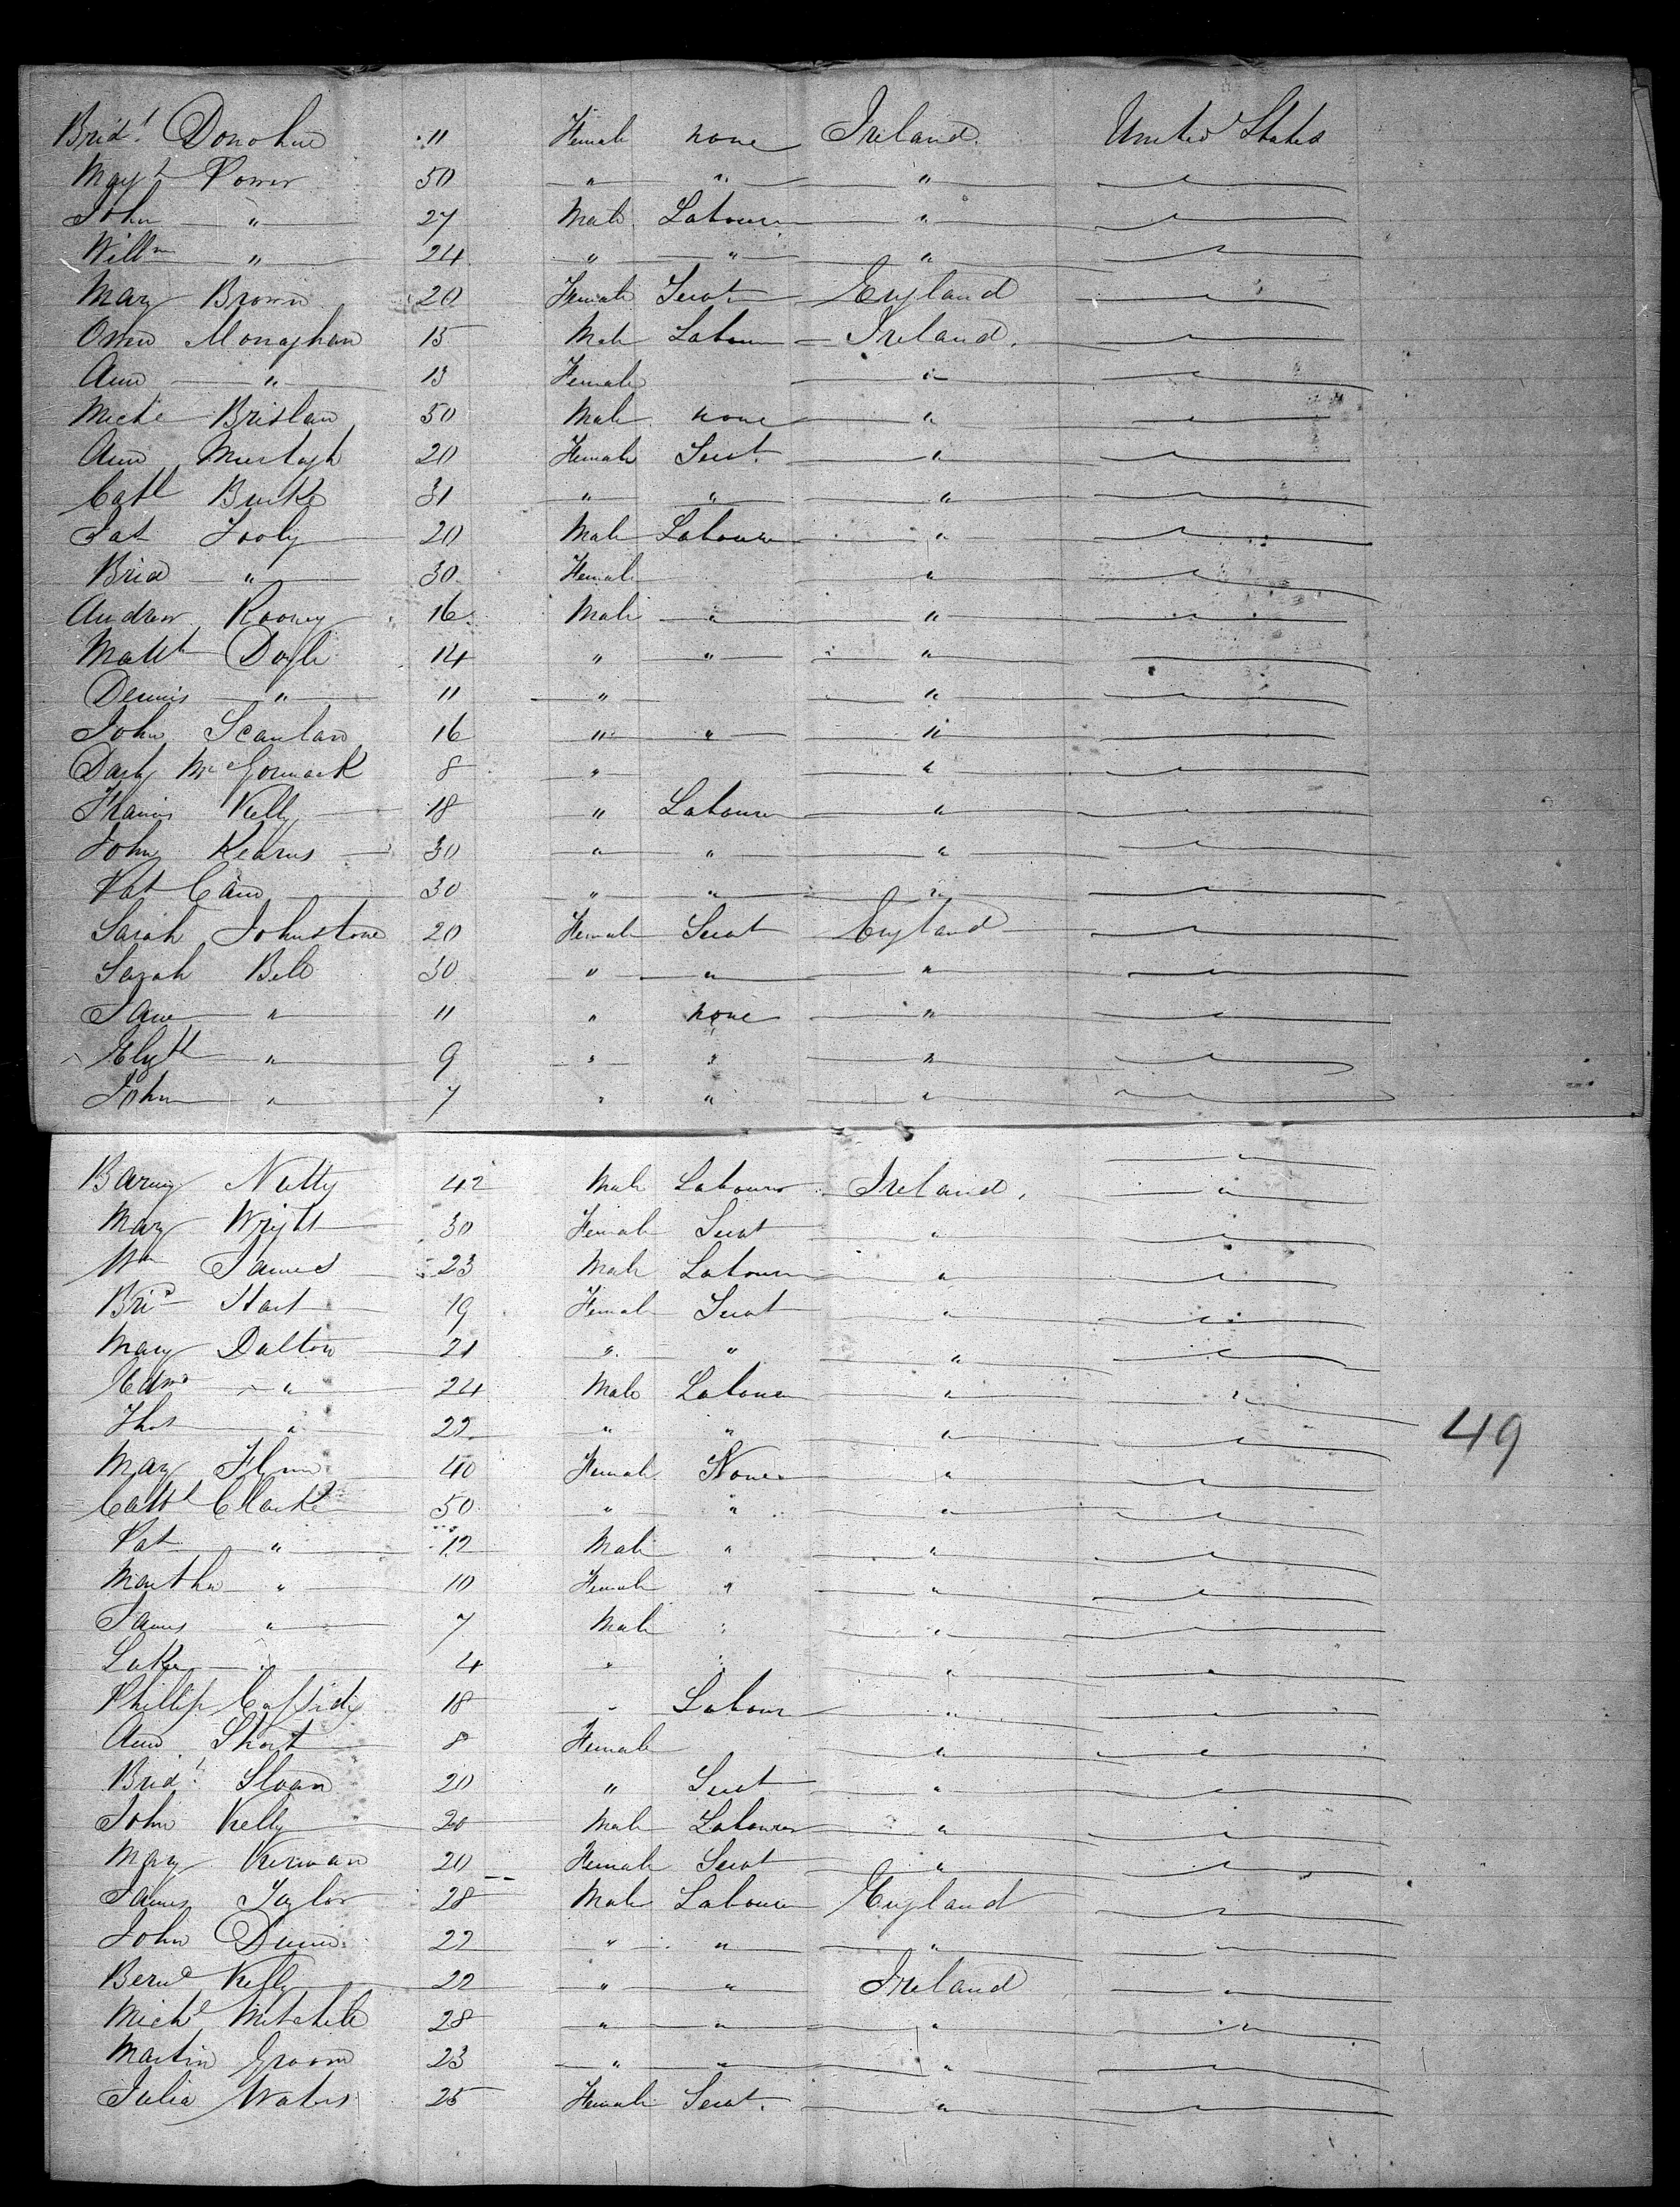 Brid.t Donohue 11 Female none Ireland. United States
Mag.t Power 50 " " " "
John " 27 Male Labourer " "
Willm " 24 " " " "
Mary Brown 20 Female Servt England "
Owen Monaghan 15 Male Labourer Ireland. "
Ann " 13 Female " "
Michl Brislan 50 Male none " "
Ann Murtagh 20 Female Servt. " "
Cathl Burke 31 " " " "
Pat Fooly 20 Male Labourer " "
Brid " 30 Female " "
Andrew Rooney 16 Male " " "
Matth Doyle 14 " " "
Dennis " 11 " " "
John Scanlan 16 " " " "
Darby McGormack 8 " " "
Francis Kelly 18 " Labourer " "
John Kearns 30 " " " "
Pat Cain 30 " " " "
Sarah Johnstone 20 Female Servt England "
Sarah Bell 30 " " " "
Jane " 11 " none " "
Elizth " 9 " " " "
John " 7 " " " "
Barney Nutty 42 Male Labourer Ireland. "
Mary Wright 30 Female Servt " "
Wm James 23 Male Labourer " "
Brid Hart 19 Female Servt " "
Mary Dalton 21 " " " "
Edmd " 24 Male Labourer " "
Thos " 22 " " " "
49
Mary Flynn 40 Female None " "
Cathl Clarke 50 " " " "
Pat " 12 Male " " "
Martha " 10 Female " " "
James " 7 Male " " "
Luke " 4 " " " "
Phillip Cassidy 18 " Labour " "
Ann Short 8 Female " "
Brid.t Sloan 20 " Servt " "
John Kelly 20 Male Labourer " "
Mary Kerwan 20 Female Servt " "
James Taylor 28 Male Labourer England "
John Dunn 22 " " " "
Bernd Kelly 22 " " Ireland "
Michl Mitchell 28 " " " "
Martin Groom 23 " " " "
Julia Waters 25 Female Servt. " "